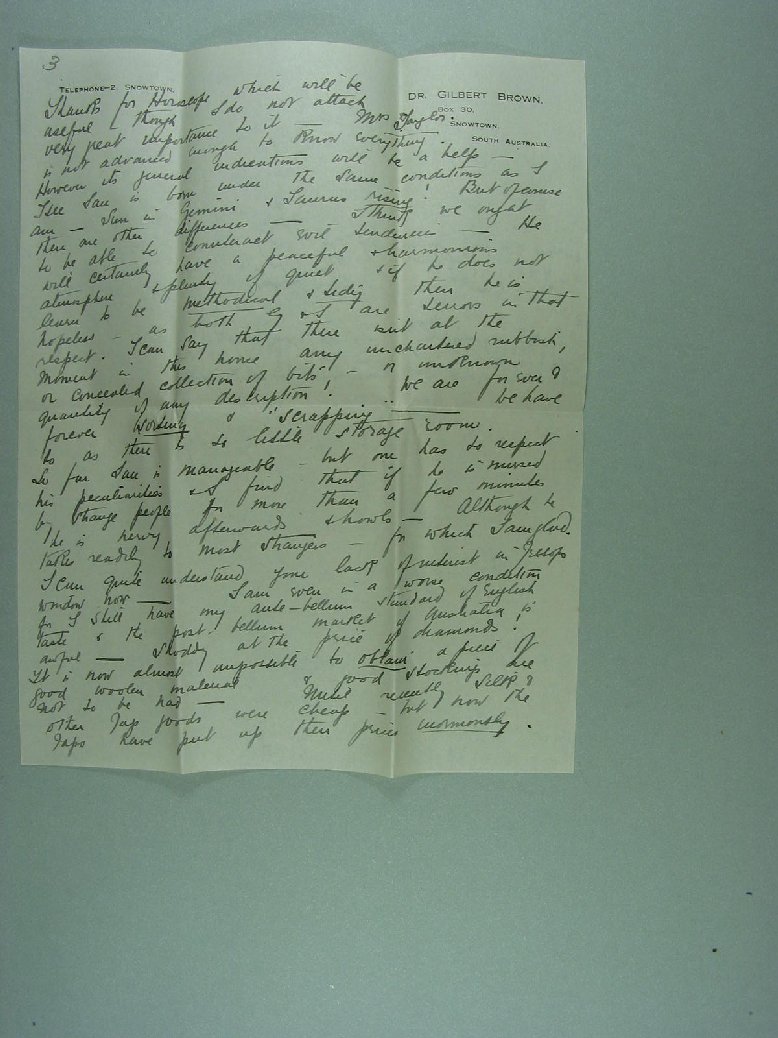 3
TELEPHONE-2 SNOWTOWN.
DR. GILBERT BROWN.
BOX 30,
SNOWTOWN,
SOUTH AUSTRALIA.
Thanks for Horoscope which will be
useful — though I do not attach
very great importance to it — Mrs Taylor.
is not advanced enough to know everything.
However its general indications will be a help —
I see Ian is born under the same conditions as I
am — Sun in Gemini & Taurus rising! But of course
there are other differences — I think we ought
to be able to counteract evil tendencies — He
will certainly have a peaceful & harmonious
atmosphere & plenty of quiet & if he does not
learn to be methodical & tidy then he is
hopeless — as both G & I are terrors in that
respect. I can say that there isn't at the
moment in this house any unchartered rubbish,
or concealed collection of bits — or unknown
quantity of any description! We are for ever &
forever sorting & "scrapping" — have
to as there is so little storage room.
So far Ian is manageable — but one has to respect
his peculiarities & I find that if he is nursed
by strange people for more than a few minutes
he is nervy afterwards & howls — Although he
takes readily to most strangers — for which I am glad.
I can quite understand your lack of interest in
window now — I am even in a worse condition
for I still have my ante-bellum standard of English
taste & the post bellum market of Australia is
awful — shoddy at the price of diamonds!
It is now almost impossible to obtain a piece of
good woolen material & good stockings are
not to be had — Until recently silk &
other Jap goods were cheap — but now the
Japs have put up their prices enormously.